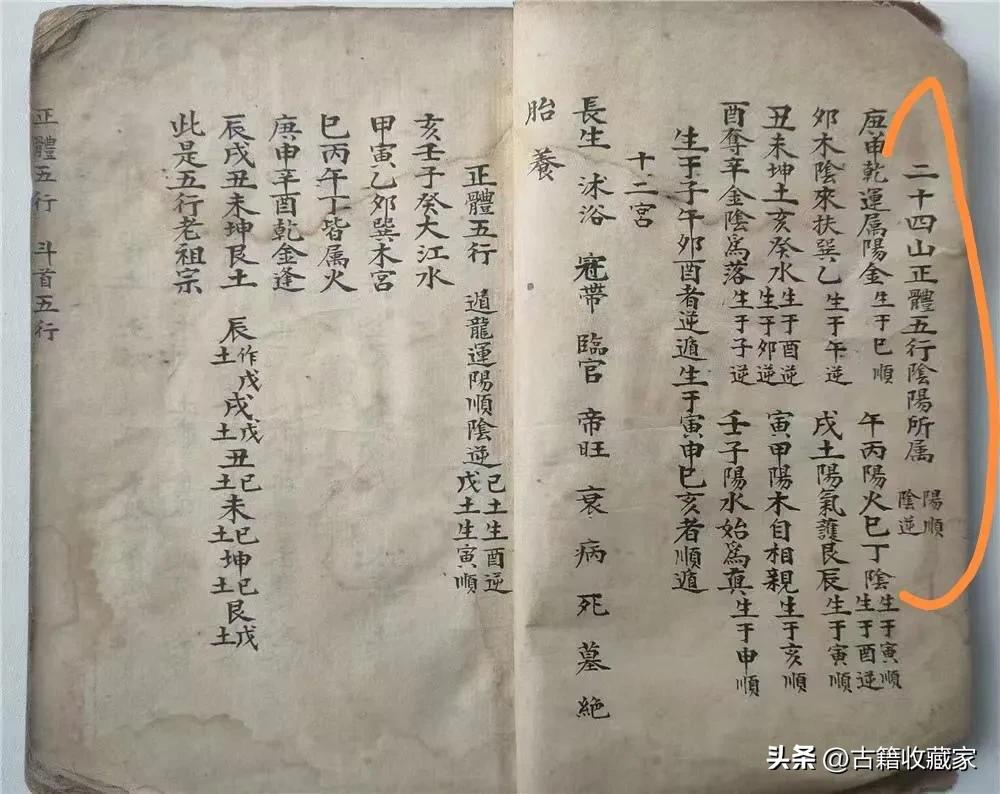 二十四山正體五行陰陽所属 陽順陰逆
庚申乾運属陽金 生于巳順 午丙陽火巳丁陰 生于寅順生于酉逆
卯木陰來扶巽乙 生于午逆 戌土陽氣護艮辰 生于寅順
丑未坤土亥癸水 生于酉逆生于卯逆 寅甲陽木自相親 生于亥順
酉奪辛金陰爲落 生于子逆 壬子陽水始爲真 生于申順
生于子午卯酉者逆遁生于寅申巳亥者順遁
十二宮
長生 沐浴 冠帶 臨官 帝旺 衰 病 死 墓 絶
胎 養
正體五行 遁龍運陽順陰逆 己土生酉逆戊土生寅順
亥壬子癸大江水
甲寅乙卯巽木宮
巳丙午丁皆属火
庚申辛酉乾金逢
辰戌丑未坤艮土 辰土作戊戌土戊丑土巳未土巳坤土巳艮土戊
此是五行老祖宗
正體五行 斗首五行
头条 @古籍收藏家